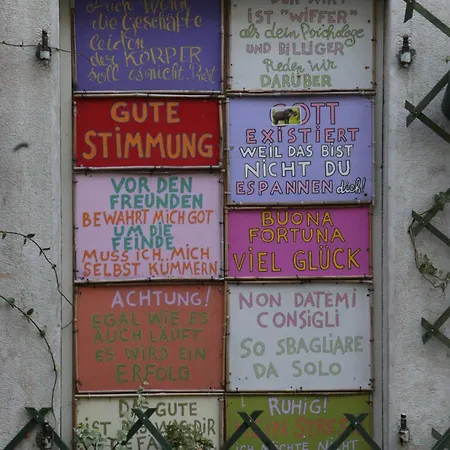 Auch wenn
die Geschäfte
leiden
DER KÖRPER
soll es nicht! Prost
DER WIRT
IST "WIFFER"
als dein Psychologe
UND BILLIGER
Reden wir
DARÜBER
GUTE
STIMMUNG
GOTT
EXISTIERT
WEIL DAS BIST
NICHT DU
ESPANNEN dich!
VOR DEN
FREUNDEN
BEWAHRT MICH GOT
UM DIE
FEINDE
MUSS ICH MICH
SELBST KÜMMERN
BUONA
FORTUNA
VIEL GLÜCK
ACHTUNG!
EGAL WIE ES
AUCH LÄUFT
ES WIRD EIN
ERFOLG
NON DATEMI
CONSIGLI
SO SBAGLIARE
DA SOLO
DAS GUTE
IST, WAS DIR
RUHIG!
ICH MÖCHTE NICHT